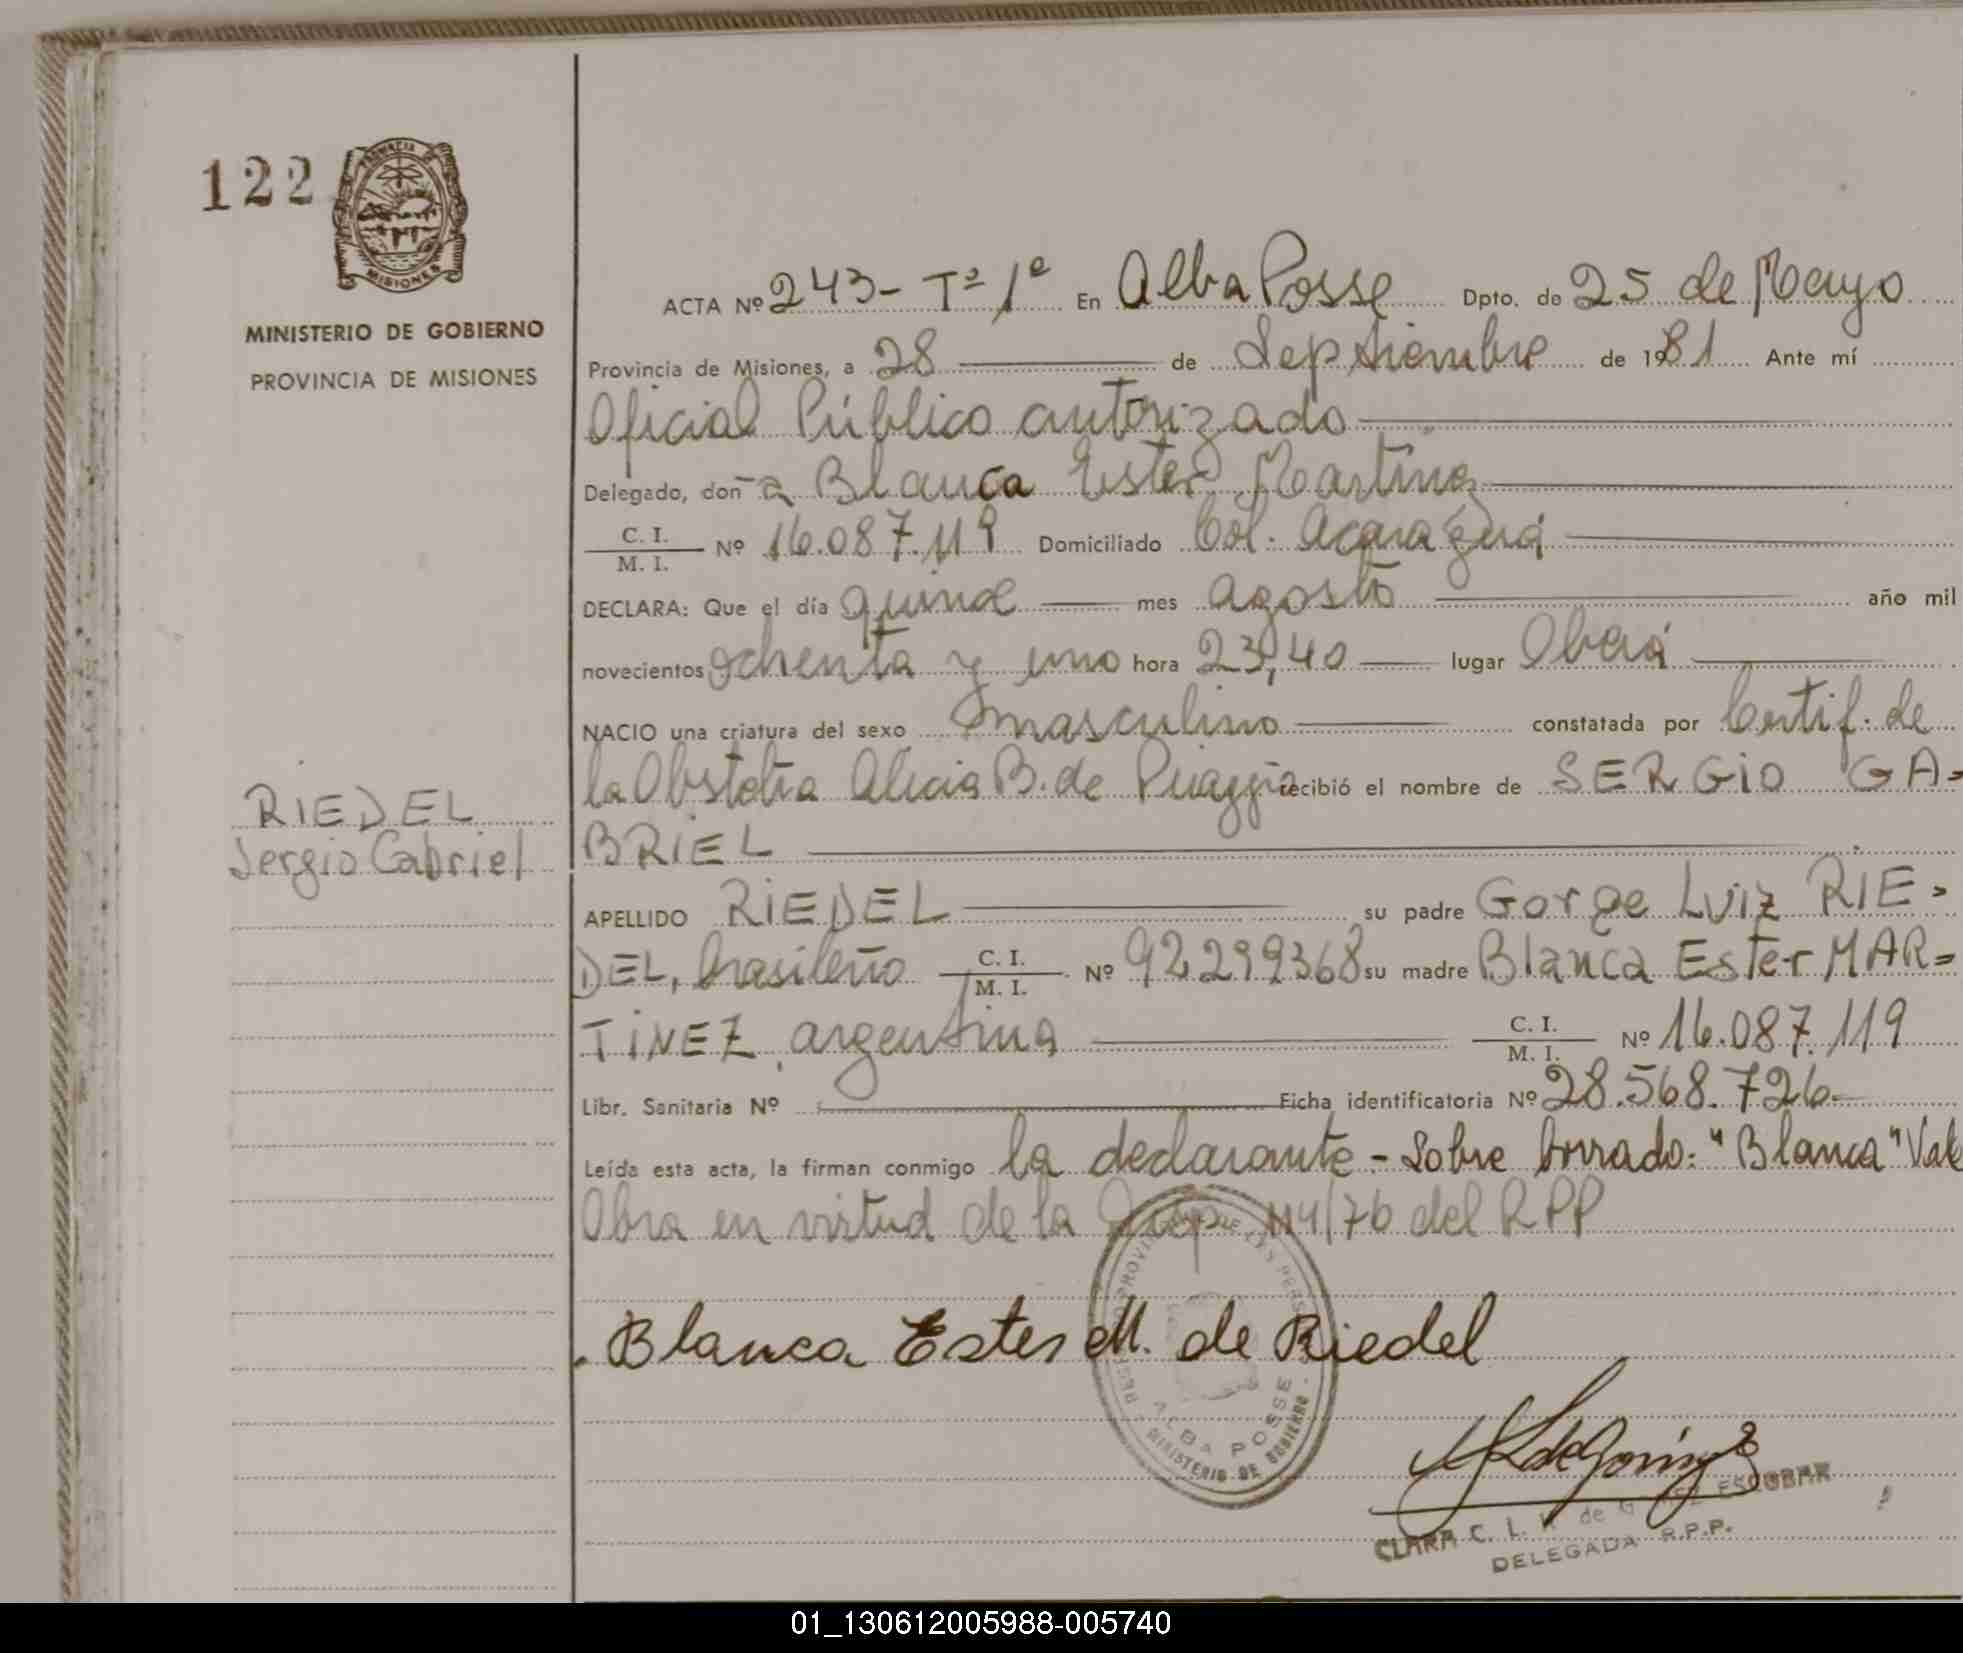 122
PROVINCIA DE
MISIONES
MINISTERIO DE GOBIERNO
PROVINCIA DE MISIONES
ACTA Nº 243- Tº 1º En Alba Posse Dpto. de 25 de Mayo
Provincia de Misiones, a 28 de Septiembre de 1981 Ante mí
Oficial Público autorizado
Delegado, don a Blanca Ester Martinez
C. I.
M. I. Nº 16.087.119 Domiciliado Col. Acaraguá
DECLARA: Que el día quince mes agosto año mil
novecientos ochenta y uno hora 23,40 lugar Oberá
NACIO una criatura del sexo masculino constatada por Certif. de
la Obstetra Alicia B. de Piaggio recibió el nombre de SERGIO GA=
BRIEL
RIEDEL
Sergio Gabriel
APELLIDO RIEDEL su padre Gorge Luiz RIE=
DEL, brasileño C. I.
M. I. Nº 92.299368 su madre Blanca Ester MAR=
TINEZ, argentina C. I.
M. I. Nº 16.087.119
Libr. Sanitaria Nº Ficha identificatoria Nº 28.568.726
Leída esta acta, la firman conmigo la declarante - Sobre borrado: "Blanca" Vale
Obra en virtud de la Disp 114/76 del RPP
Blanca Ester M. de Riedel
ALBA POSSE
MINISTERIO DE GOBIERNO
CLARA C. L. de ESCOBAR
DELEGADA R.P.P.
01_130612005988-005740